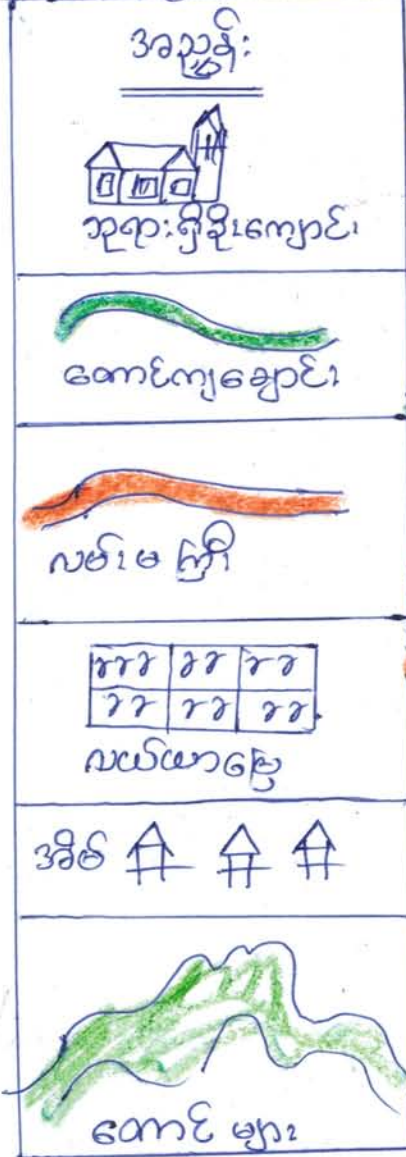 အညွှန်း
ဘုရားရှိခိုးကျောင်း
တောင်ကျချောင်း
လမ်းမကြီး
လယ်ယာမြေ
အိမ်
တောင်များ